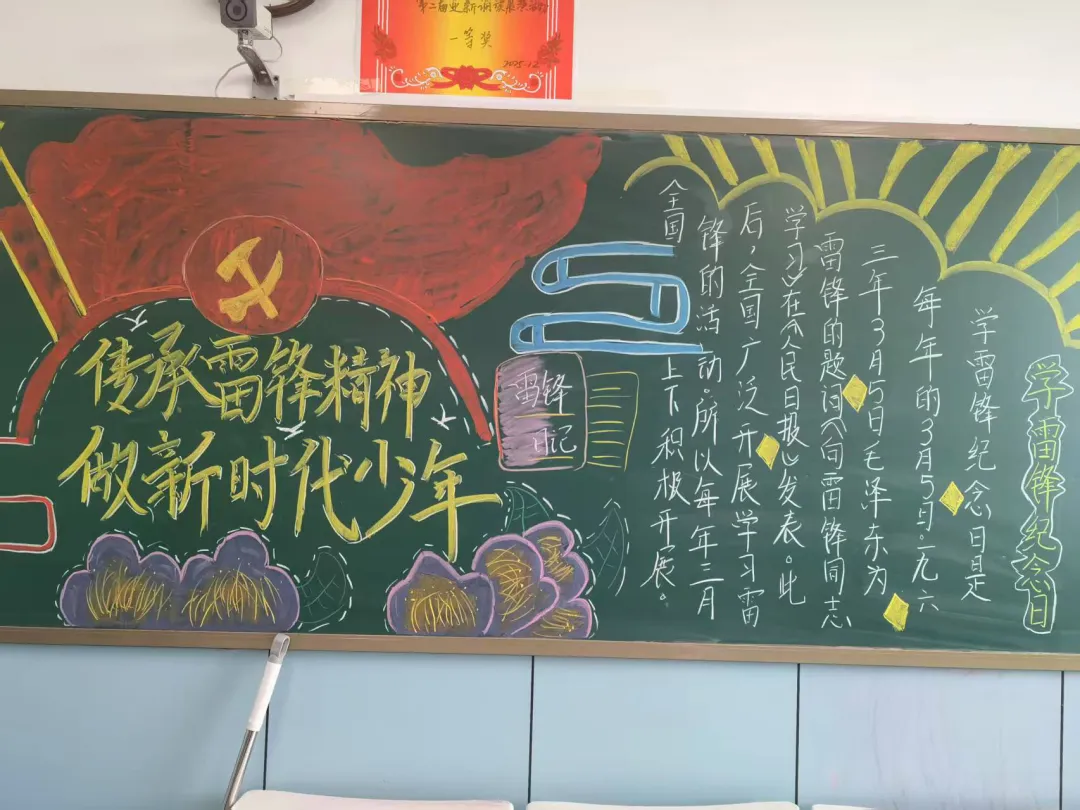 一等奖
2025.12
传承雷锋精神
做新时代少年
雷锋
日记
学雷锋纪念日
学雷锋纪念日是
每年的3月5日。一九六
三年3月5日毛泽东为
雷锋的题词《向雷锋同志
学习》在《人民日报》发表。此
后，全国广泛开展学习雷
锋的活动。所以每年三月
全国上下积极开展。